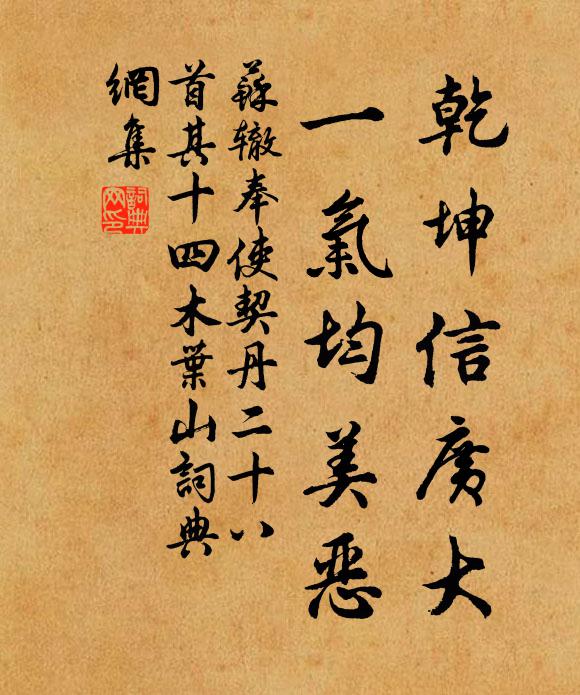 乾坤信廣大
一氣均美惡
蘇辙奉使契丹二十八
首其十四木葉山詞典
網集
詞典網印